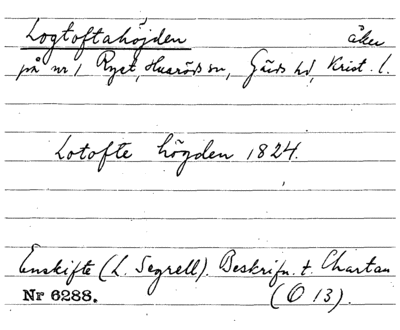 Logtoftahöjden åker
på nr 1 Ryet, Huaröds sn, Gärds hd, Krist. l.
Lotofte högden 1824.
Enskifte (L. Segrell). Beskrifn. t. Chartan
Nr 6288. (O 13).